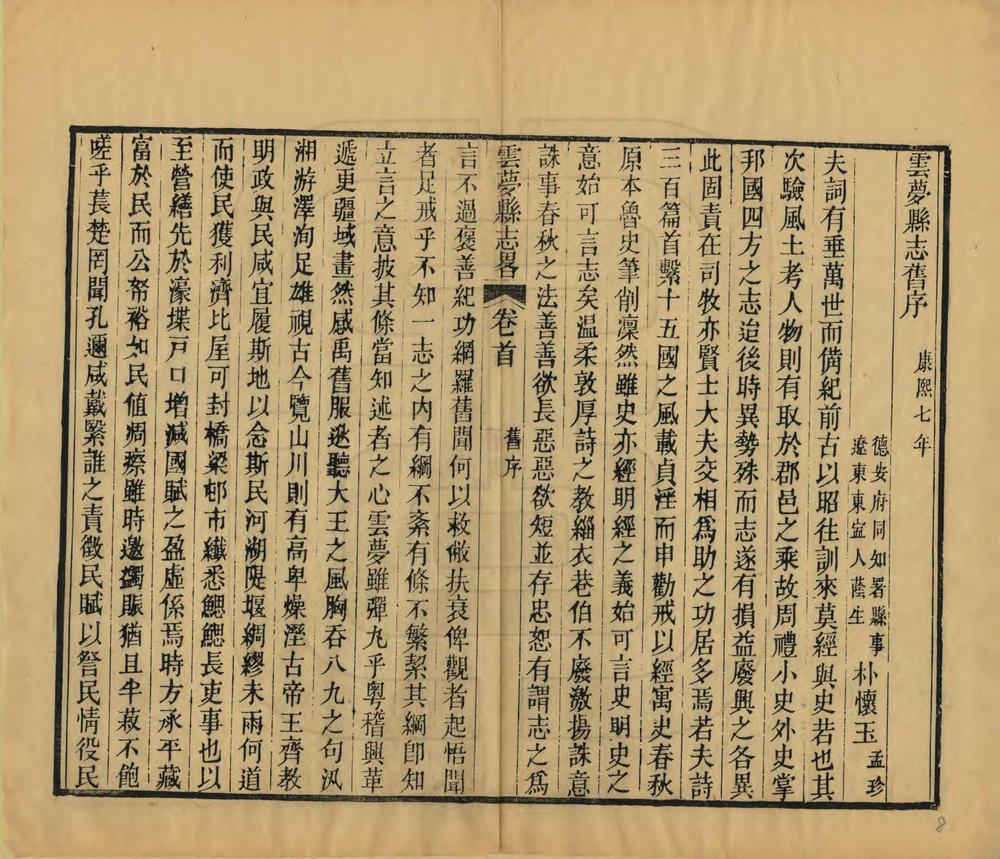 雲夢縣志舊序
康熙七年
德安府同知署縣事
遼東東寍人蔭生
朴懷玉
孟珍
夫詞有垂萬世而備紀前古以昭往訓來莫經與史若也其
次驗風土考人物則有取於郡邑之乘故周禮小史外史掌
邦國四方之志迨後時異勢殊而志遂有損益廢興之各異
此固責在司牧亦賢士大夫交相爲助之功居多焉若夫詩
三百篇首繫十五國之風載貞淫而申勸戒以經寓史春秋
原本魯史筆削凜然雖史亦經明經之義始可言史明史之
意始可言志矣温柔敦厚詩之教緇衣巷伯不廢激揚誅意
誅事春秋之法善善欲長惡惡欲短並存忠恕有謂志之爲
雲夢縣志畧
卷首
舊序
言不過褒善紀功網羅舊聞何以救敝扶衰俾觀者起悟聞
者足戒乎不知一志之內有綱不紊有條不繁絜其綱卽知
立言之意披其條當知述者之心雲夢雖彈丸乎粵稽興革
遞更疆域畫然感禹舊服逖聽大王之風胸吞八九之句汎
湘游澤洵足雄視古今覽山川則有高卑燥溼古帝王齊教
明政與民咸宜履斯地以念斯民河湖隄堰綢繆未雨何道
而使民獲利濟比屋可封橋梁邨市纖悉鰓鰓長吏事也以
至營繕先於濠堞戸口增減國賦之盈虛係焉時方承平藏
富於民而公帑裕如民值凋瘵雖時邀蠲賑猶且半菽不飽
嗟乎萇楚罔聞孔邇咸戴繄誰之責徵民賦以詧民情役民
8